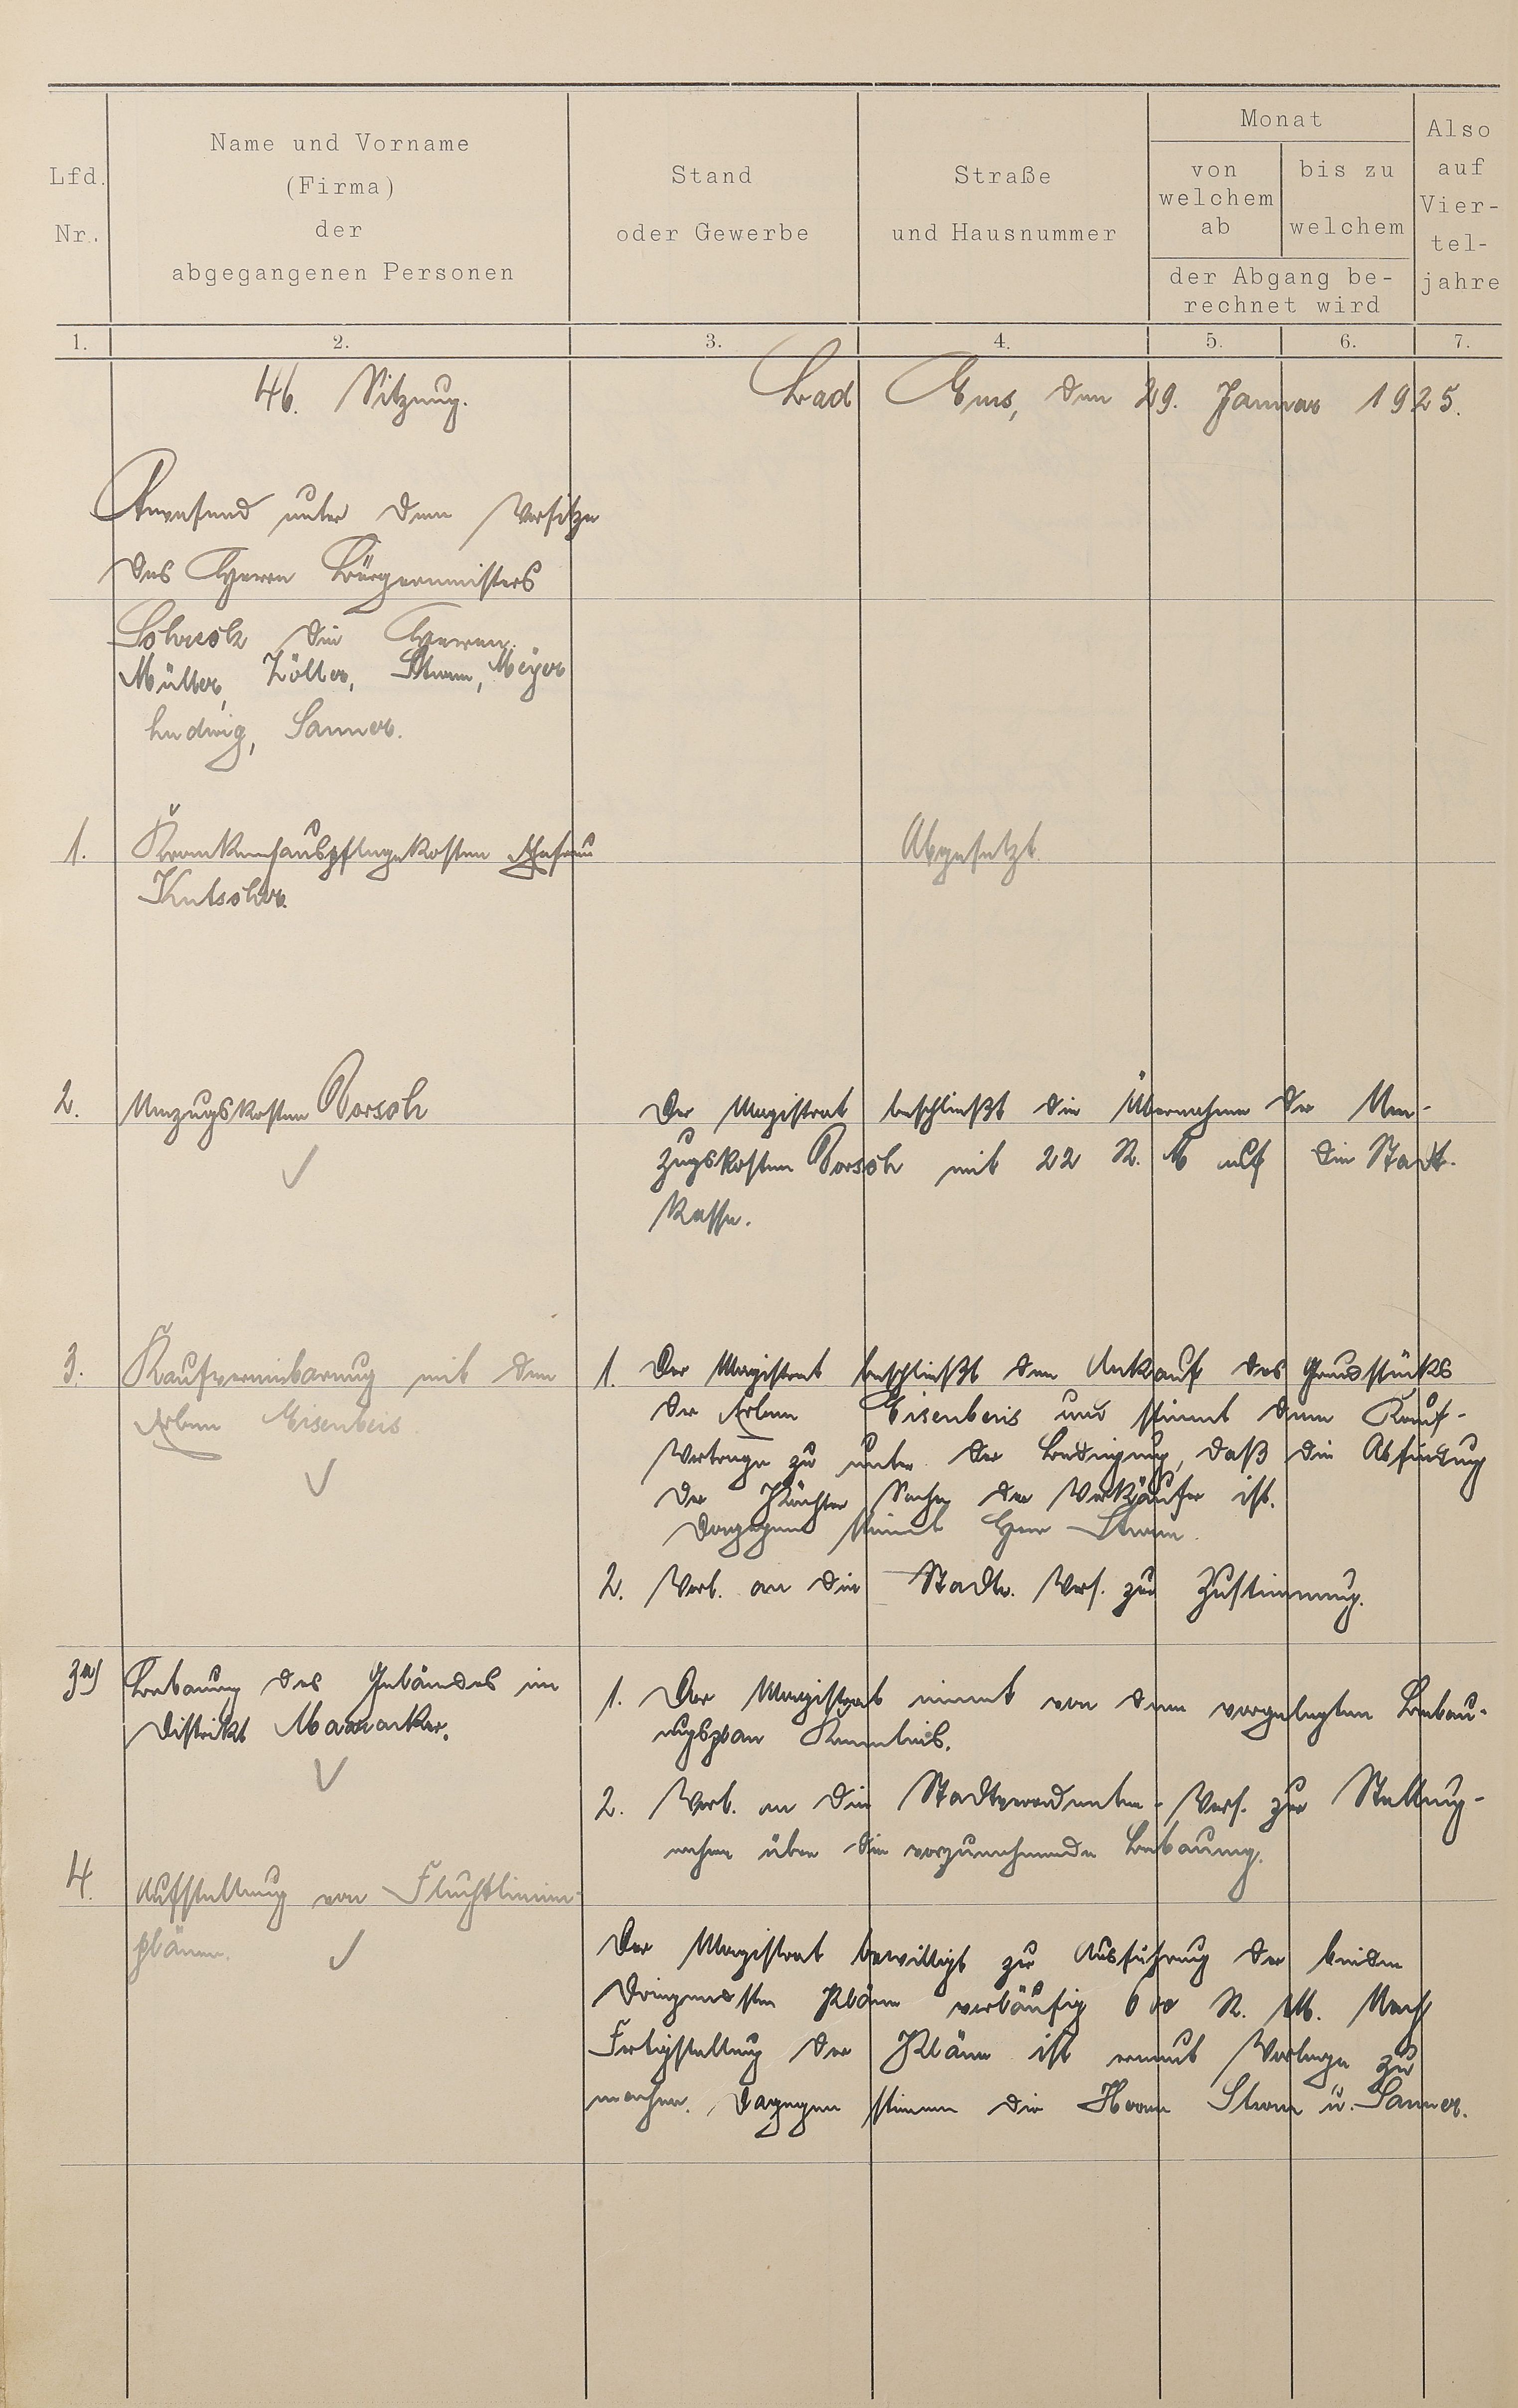 Lfd.
Nr.
Name und Vorname
(Firma)
der
abgegangenen Personen
Stand
oder Gewerbe
Straße
und Hausnummer
Monat
von
welchem
ab
bis zu
welchem
der Abgang be-
rechnet wird
Also
auf
Vier-
tel-
jahre
1. 2. 3. 4. 5. 6. 7.
46. Sitzung. Bad Ems, den 29. Januar 1925.
Anwesend unter dem Vorsitze
des Herrn Bürgermeisters
die Herren
Müller, Zöller, Sturm, Meyer
Ludwig, Sanner.
1. Krankenhauspflegekosten Ehefrau
Kutscher
Abgesetzt.
2. Umzugskosten Porsch
Der Magistrat beschließt die Übernahme der Um-
zugskosten Porsch mit 22 R. M auf die Stadt-
kasse.
3. Kaufvereinbarung mit den
Erben Eisenbeis
1. Der Magistrat beschließt den Ankauf des Grundstücks
der Erben Eisenbeis und stimmt dem Kauf-
vertrage zu unter der Bedingung, daß die Abfindung
der Pächter Sache der Verkäufer ist.
Dagegen stimmt Herr Sturm.
2. Vorl. an die Stadtv. Vers. zur Zustimmung.
3a) Bebauung des Geländes im
Distrikt
1. Der Magistrat nimmt von dem vorgelegten Bebau-
ungsplan Kenntnis.
2. Vorl. an die Stadtverordneten-Vers. zur Stellung-
nahme über die vorzunehmende Bebauung.
4. Aufstellung von Fluchtlinien-
plänen.
Der Magistrat bewilligt zur Ausführung der beiden
dringendsten Pläne vorläufig 600 R. M. Nach
Fertigstellung der Pläne ist erneut Vorlage zu
machen. Dagegen stimmen die Herren Sturm u. Sanner.